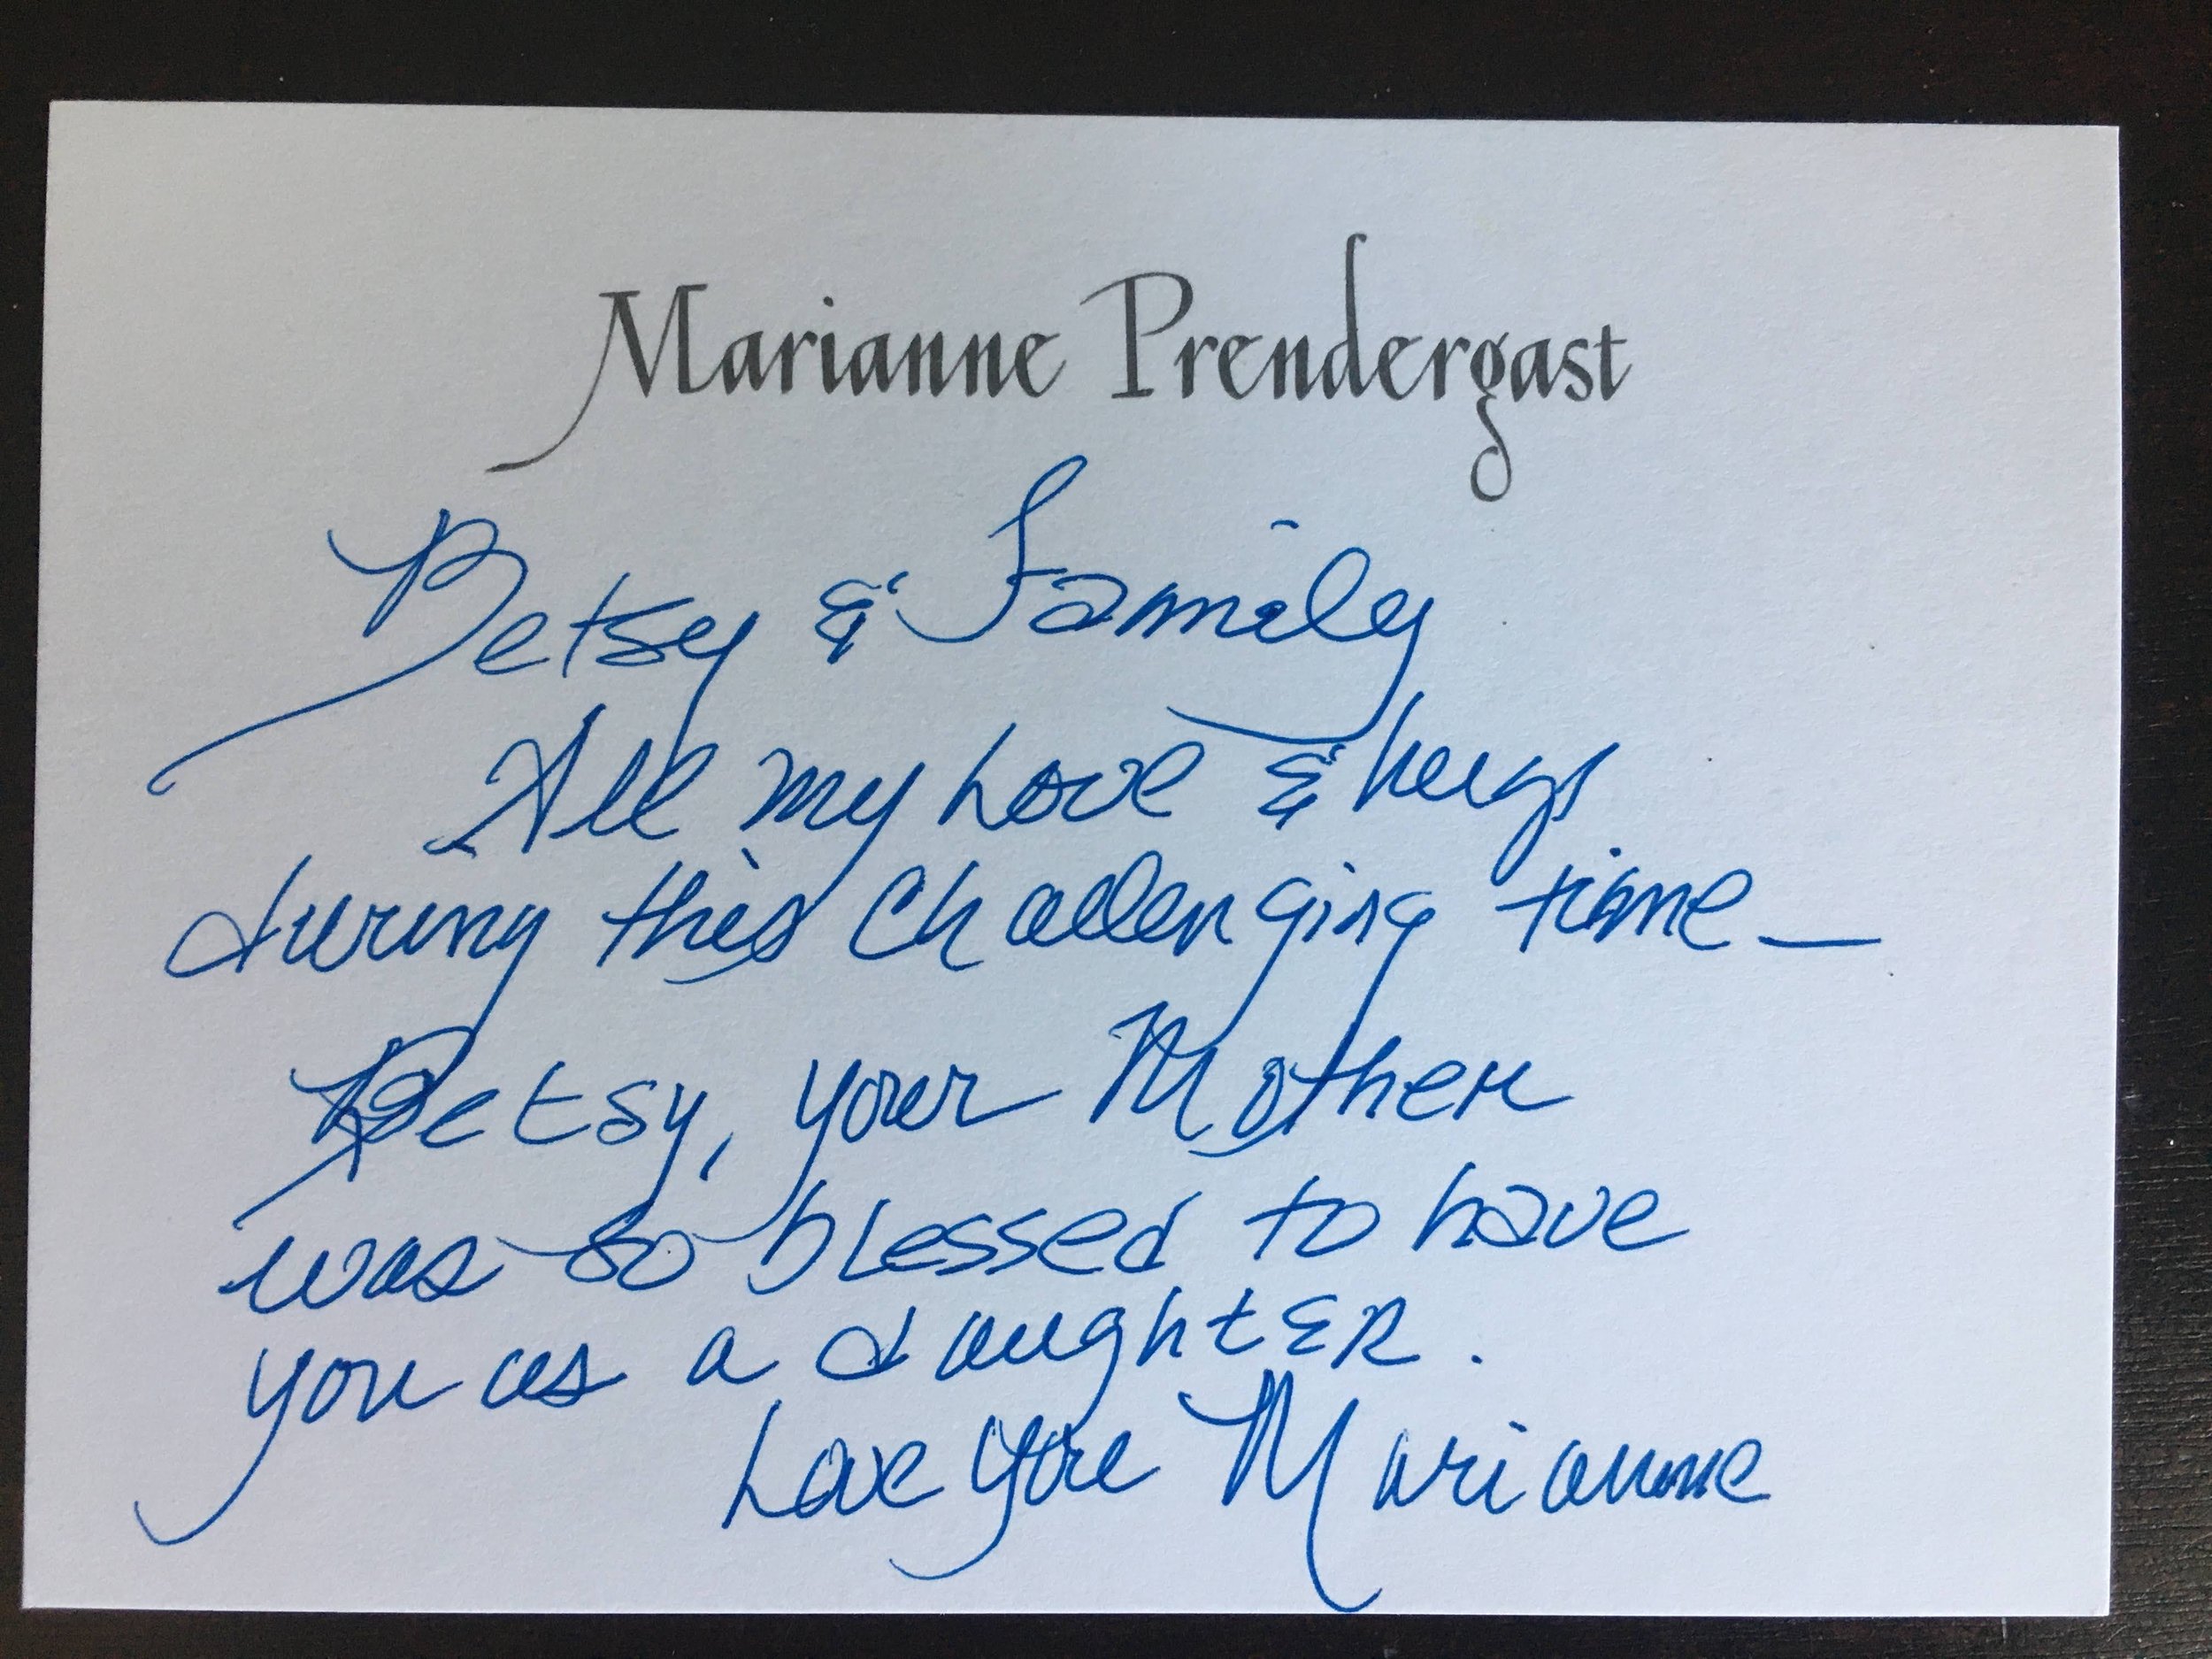 Marianne Prendergast
Betsy & Family
All my Love & hugs
during this challenging time—
Betsy, your Mother
was so blessed to have
you as a daughtER.
Love you Marianne